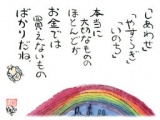 「しあわせ」
「やすらぎ」
「いのち」
本当に
大切なものの
ほとんどが、
お金では
買えないもの
ばかりだね。